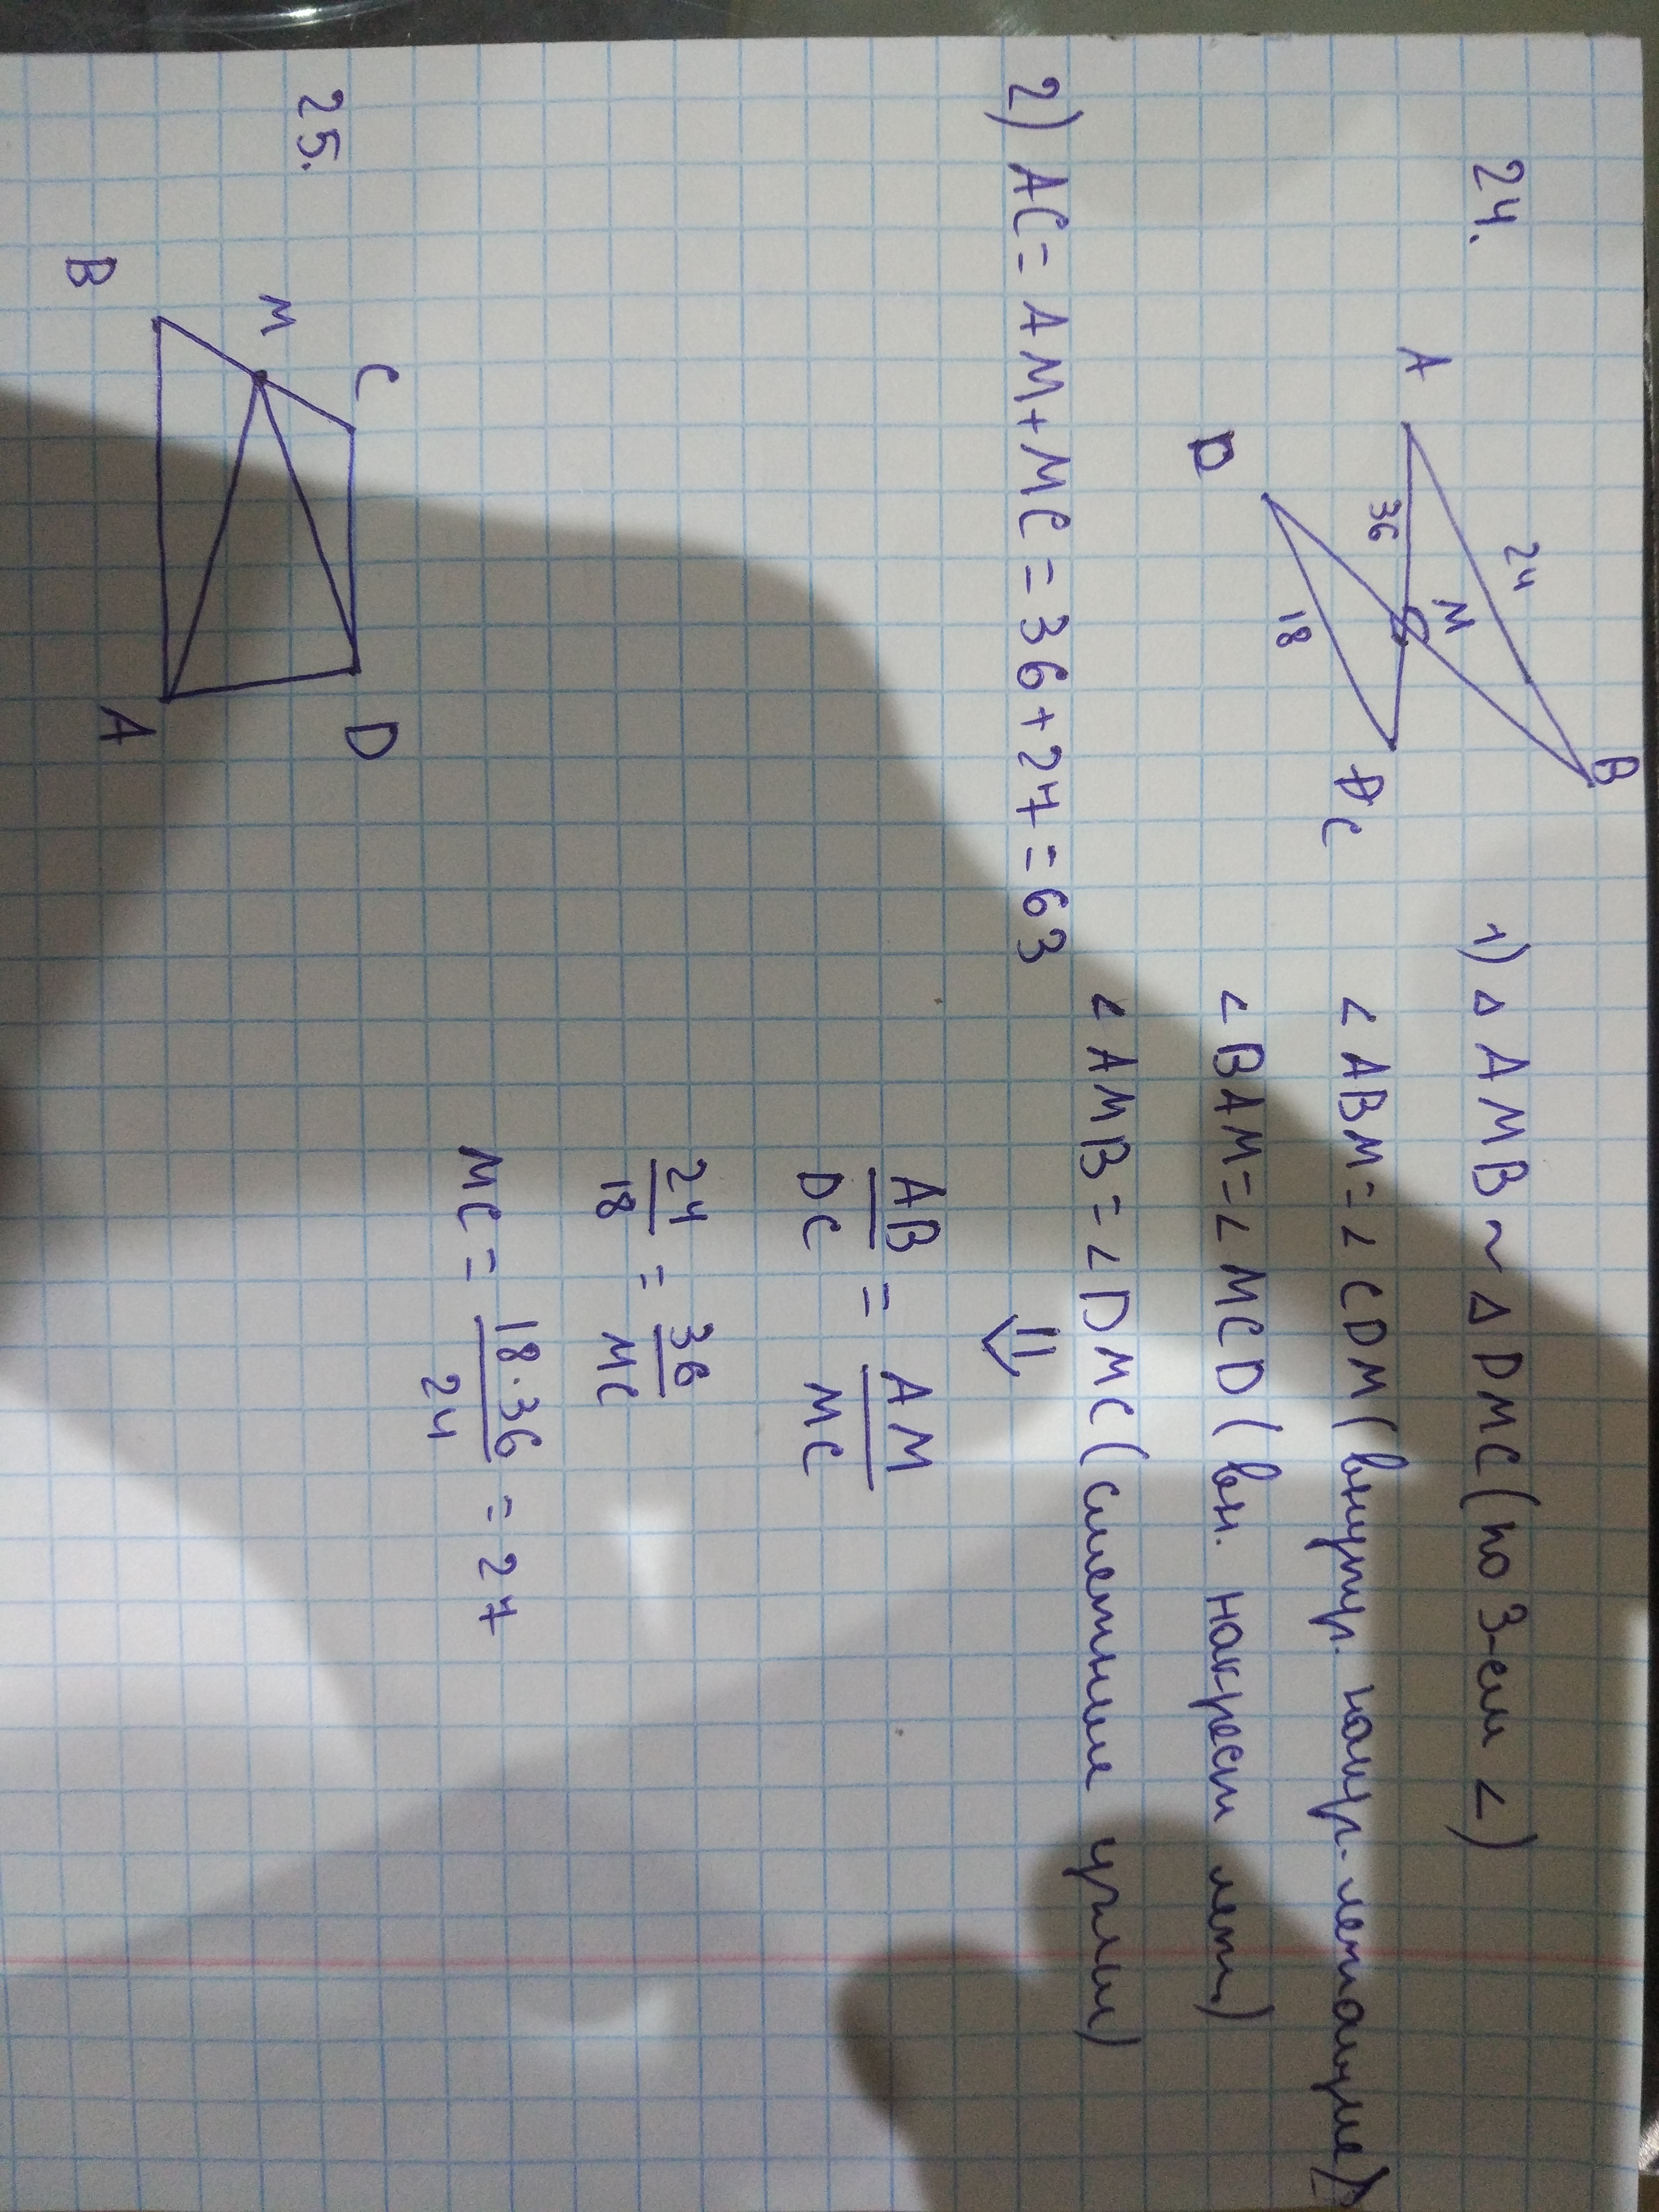 24.
A
B
24
M
36
18
D
C
1) Δ AMB ~ Δ DMC (по 3-ем <)
< ABM = < CDM (внутр. накр. лежащие)
< BAM = < MCD (вн. накрест леж)
< AMB = < DMC (смежные углы)
⇓
AB/DC = AM/MC
24/18 = 36/MC
MC = 18·36/24 = 27
2) AC = AM + MC = 36 + 27 = 63
25.
C
D
M
B
A